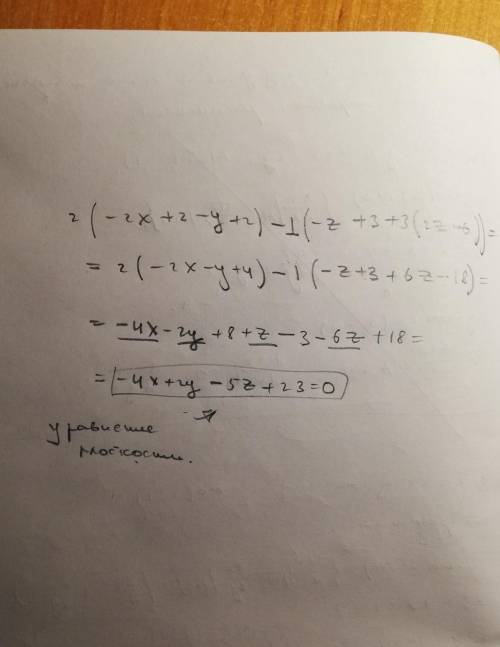 2(-2x+2-y+2)-1(-z+3+3(2z-6))=
=2(-2x-y+4)-1(-z+3+6z-18)=
=-4x-2y+8+z-3-6z+18=
=-4x+2y-5z+23=0
уравнение
плоскости.